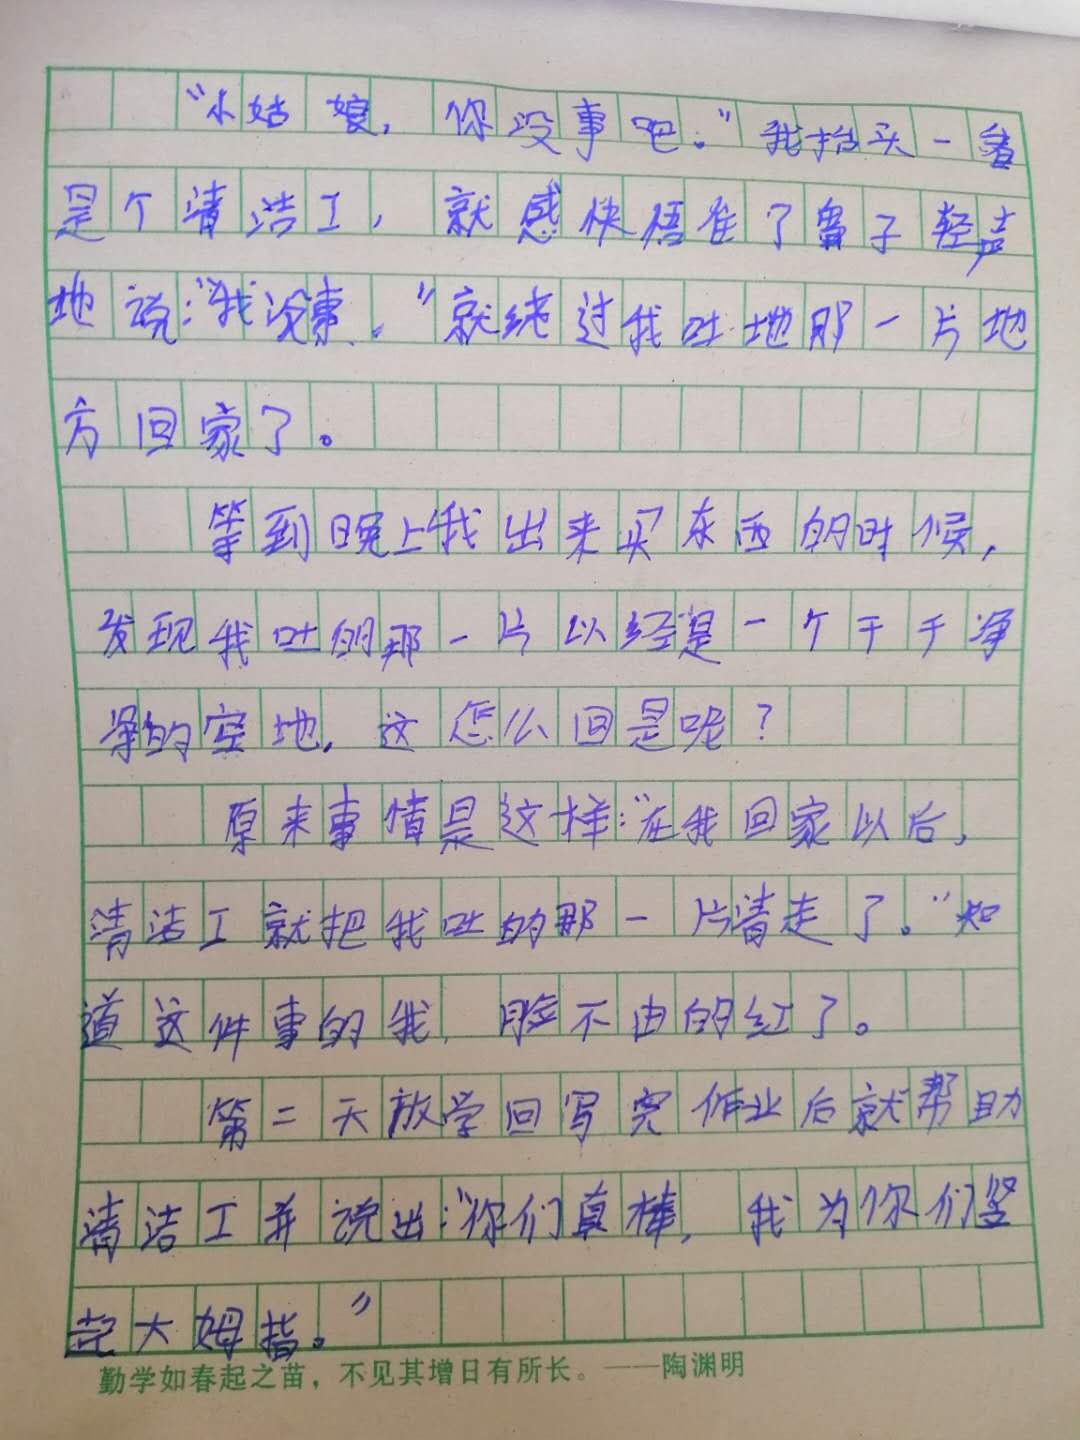 “小姑娘，你没事吧。”我抬头一看
是个清洁工，就感快捂住了鼻子轻声
地说：“我没事。”就绕过我吐地那一片地
方回家了。
等到晚上我出来买东西的时候，
发现我吐的那一片以经是一个干干净
净的空地，这怎么回是呢？
原来事情是这样：“在我回家以后，
清洁工就把我吐的那一片清走了。”知
道这件事的我，脸不由的红了。
第二天放学回写完作业后就帮助
清洁工并说出：“你们真棒，我为你们竖
起大姆指。”
勤学如春起之苗，不见其增日有所长。——陶渊明